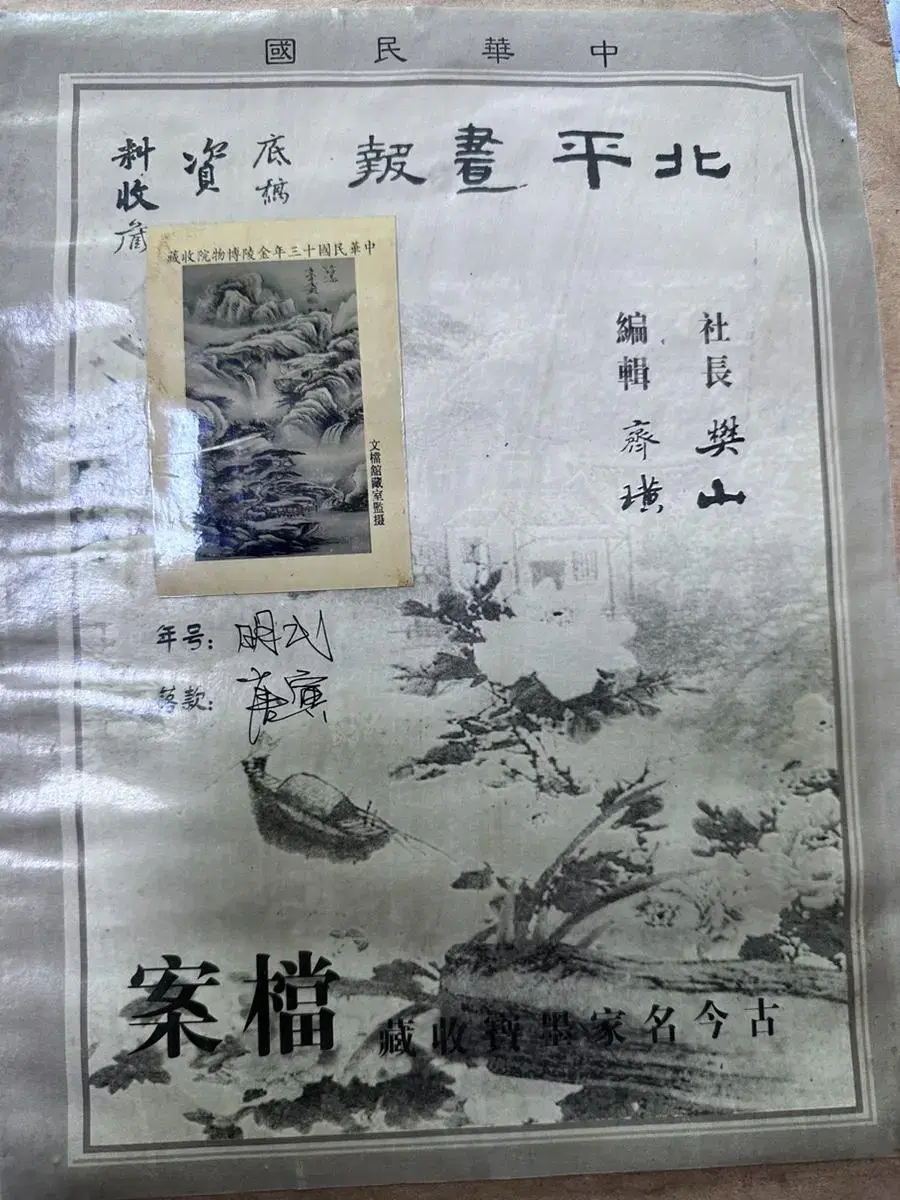 中華民國
北平畫報
底稿
資
料收
中華民國十三年金陵博物院收藏
文檔館藏室監摄
社長 樊山
編輯 齊璜
年号:明
落款:唐寅
古今名家墨寶收藏
檔案